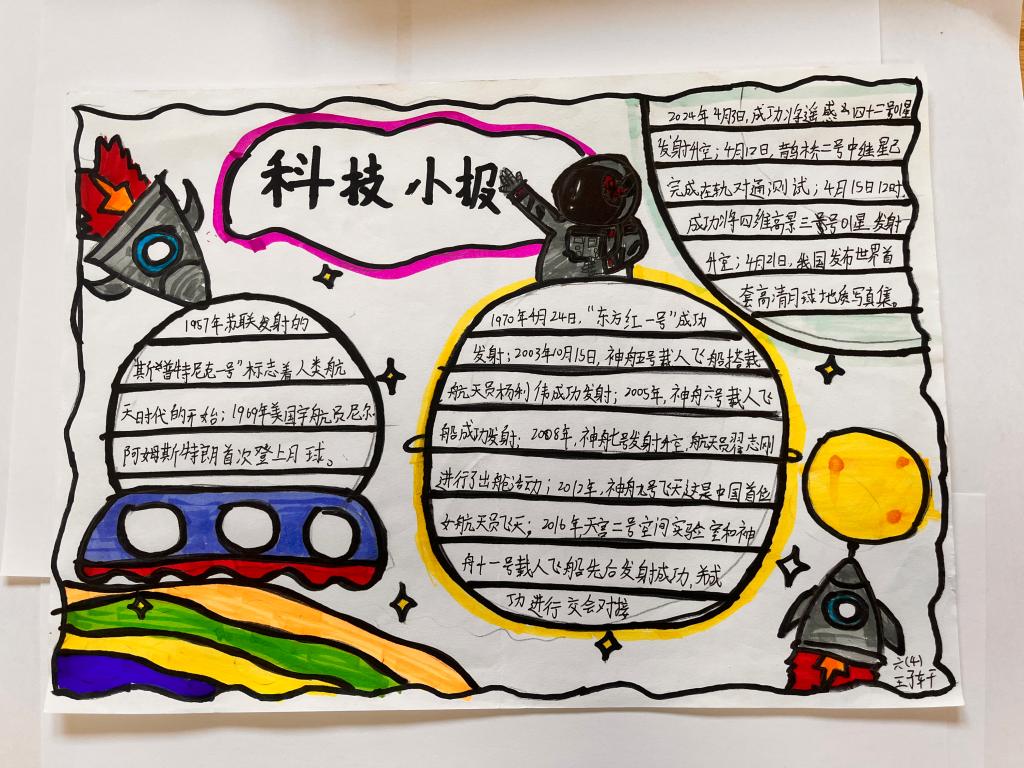 科技小报
2024年4月3日,成功将遥感四十二号01星
发射升空;4月12日,鹊桥二号中继星已
完成在轨对通测试;4月15日12时
成功将四维高景三号01星发射
升空;4月21日,我国发布世界首
套高清月球地质写真集。
1957年苏联发射的
"斯普特尼克一号"标志着人类航
天时代的开始;1969年美国宇航员尼尔
阿姆斯特朗首次登上月球。
1970年4月24日,"东方红一号"成功
发射;2003年10月15日,神舟五号载人飞船搭载
航天员杨利伟成功发射;2005年,神舟六号载人飞
船成功发射;2008年,神舟七号发射升空,航天员翟志刚
进行了出舱活动;2012年,神舟九号飞天这是中国首位
女航天员飞天;2016年,天宫二号空间实验室和神
舟十一号载人飞船先后发射成功,并成
功进行交会对接
六(4)
王子轩